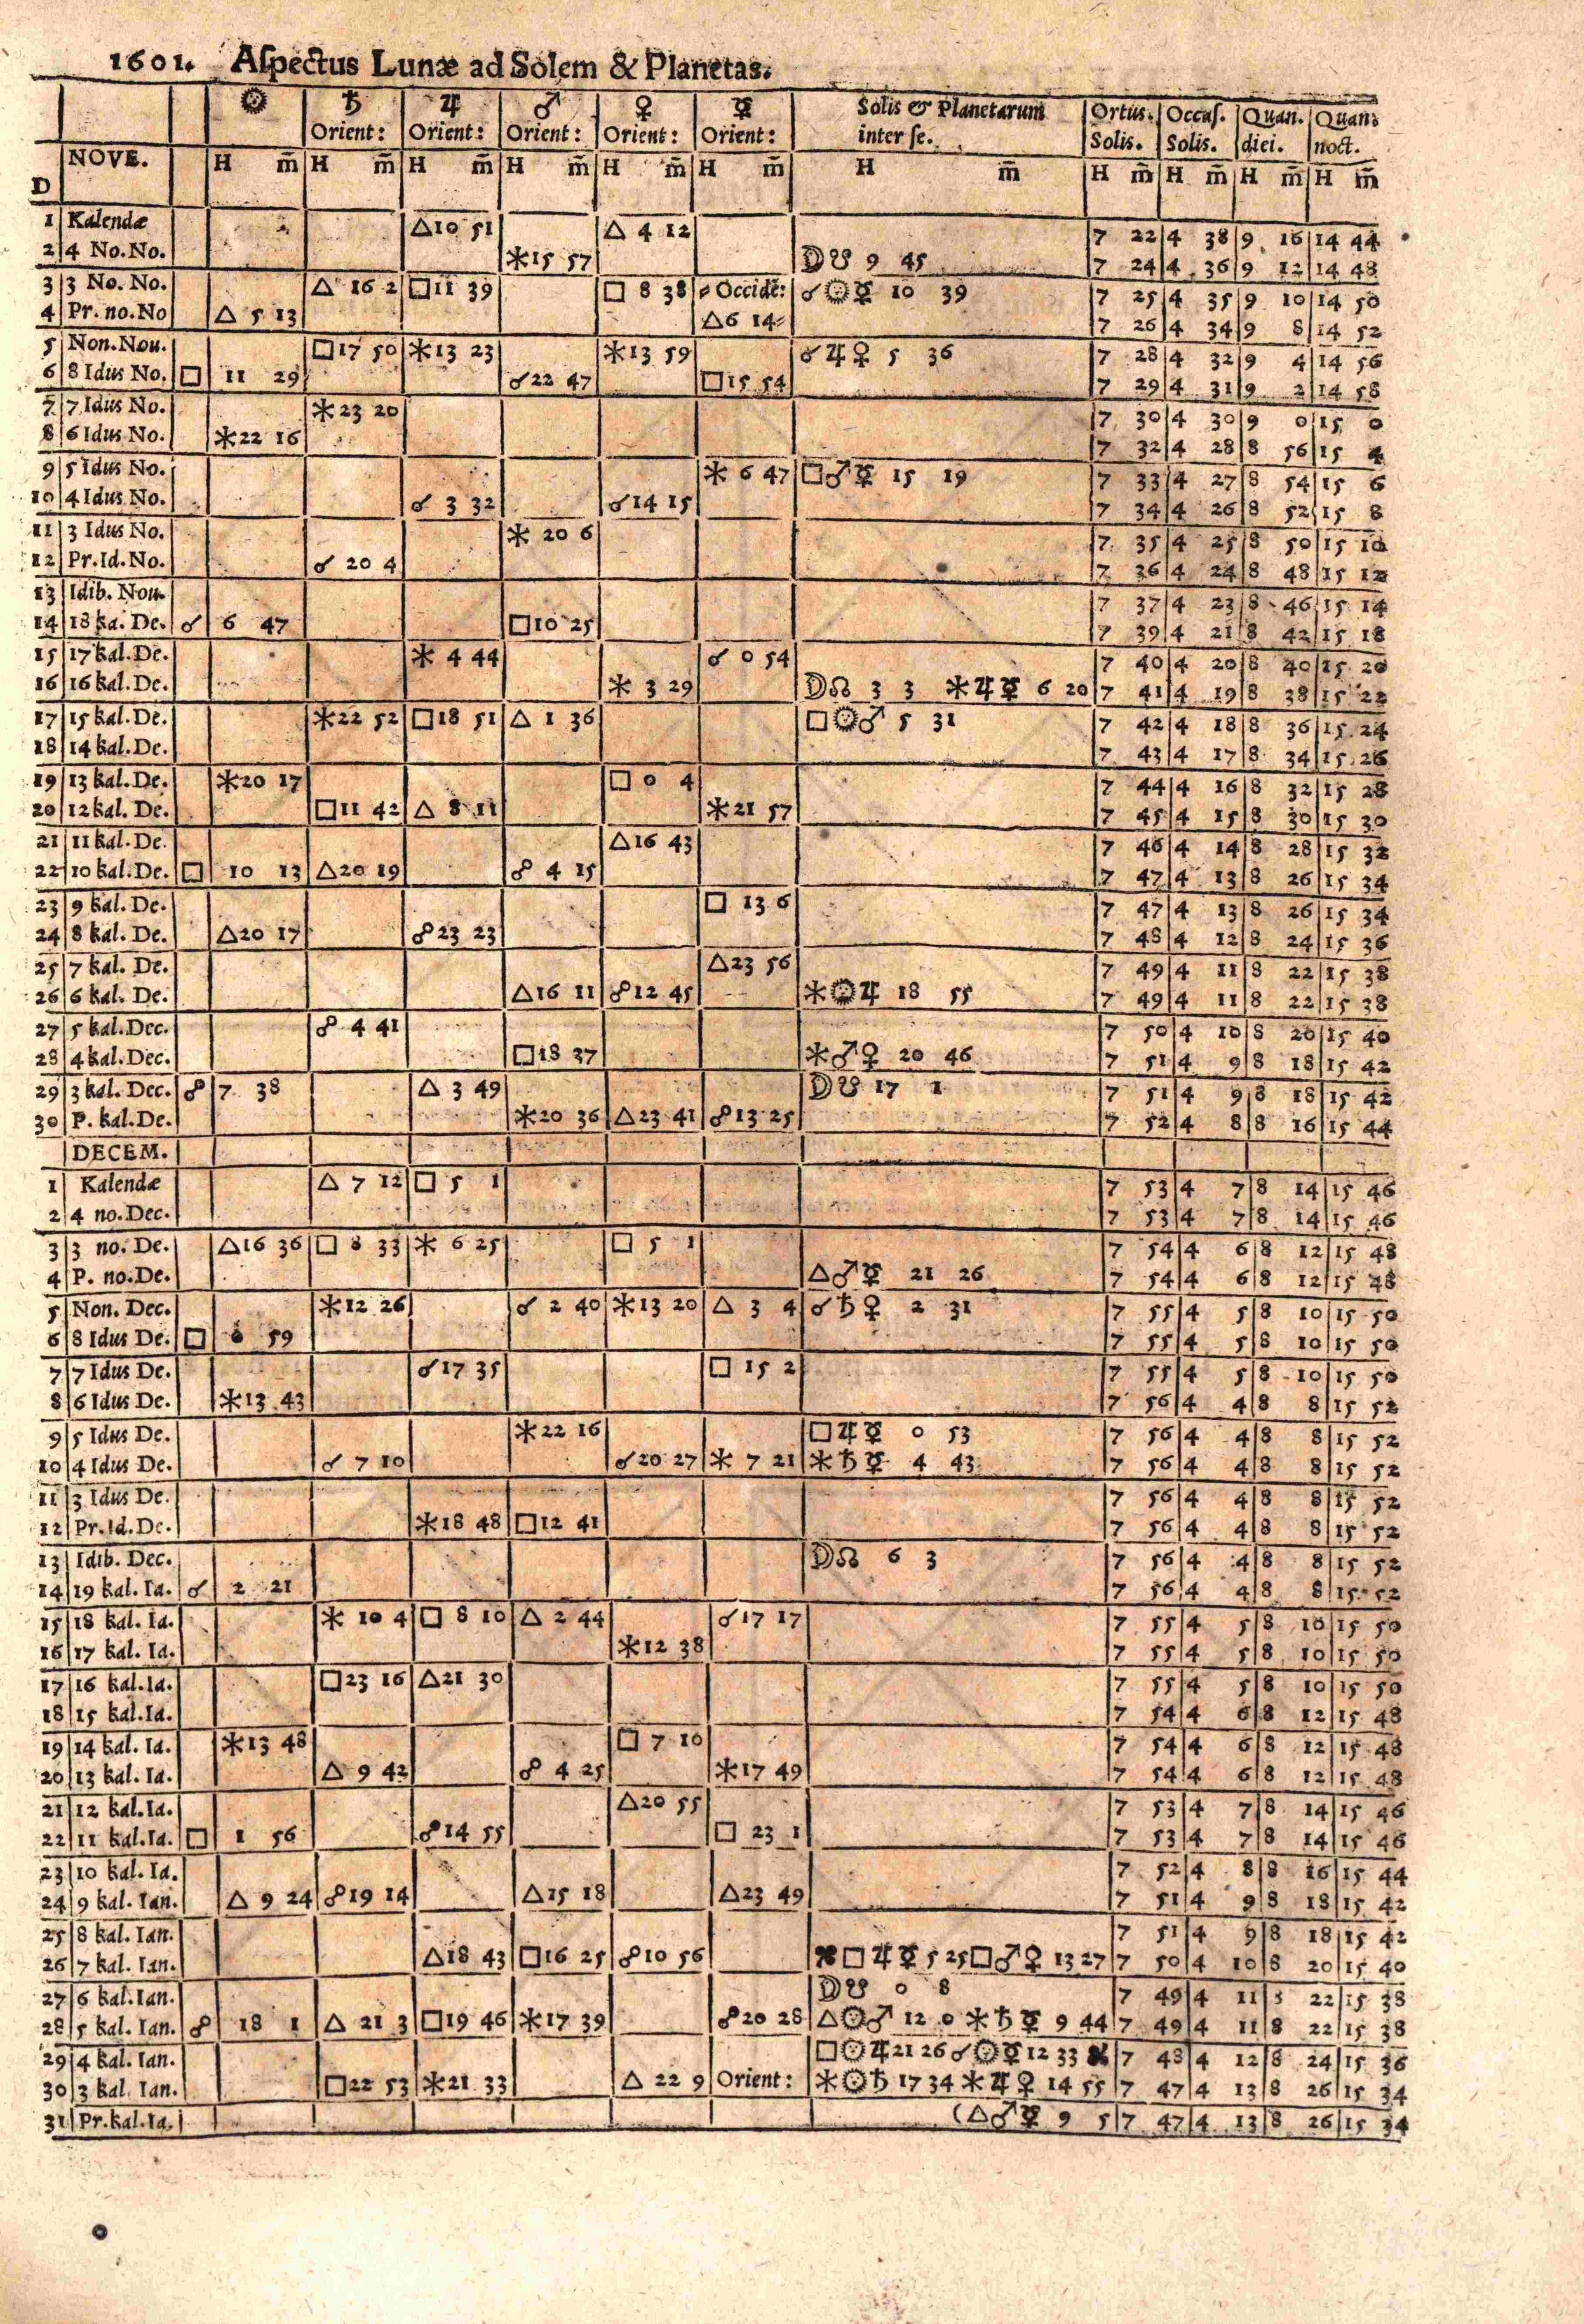 1601. Aſpectus Lunæ ad Solem & Planetas.
☉ ♄ ♃ ♂ ♀ ☿ Solis & Planetarum Ortus. Occaſ. Quan. Quan:
Orient: Orient: Orient: Orient: Orient: inter ſe. Solis. Solis. diei. noct.
D NOVE. H m̄ H m̄ H m̄ H m̄ H m̄ H m̄ H m̄ H m̄ H m̄ H m̄ H m̄
1 Kalendæ △10 51 △ 4 12 7 22 4 38 9 16 14 44
2 4 No.No. ✶15 57 ☽☋ 9 45 7 24 4 36 9 12 14 48
3 3 No. No. △ 16 2 □11 39 □ 8 38 Occidē: ☌☉☿ 10 39 7 25 4 35 9 10 14 50
4 Pr. no.No △ 5 13 △6 14 7 26 4 34 9 8 14 52
5 Non.Nou. □17 50 ✶13 23 ✶13 59 ☌♃♀ 5 36 7 28 4 32 9 4 14 56
6 8 Idus No. □ 11 29 ☌22 47 □15 54 7 29 4 31 9 2 14 58
7 7 Idus No. ✶23 20 7 30 4 30 9 0 15 0
8 6 Idus No. ✶22 16 7 32 4 28 8 56 15 4
9 5 Idus No. ✶ 6 47 □♂☿ 15 19 7 33 4 27 8 54 15 6
10 4 Idus No. ☌ 3 32 ☌14 15 7 34 4 26 8 52 15 8
11 3 Idus No. ✶ 20 6 7 35 4 25 8 50 15 10
12 Pr.Id.No. ☌ 20 4 7 36 4 24 8 48 15 12
13 Idib. Nou. 7 37 4 23 8 46 15 14
14 18 ka. De. ☌ 6 47 □10 25 7 39 4 21 8 42 15 18
15 17 kal. De. ✶ 4 44 ☌ 0 54 7 40 4 20 8 40 15 20
16 16 kal. De. ✶ 3 29 ☽☊ 3 3 ✶♃☿ 6 20 7 41 4 19 8 38 15 22
17 15 kal. De. ✶22 52 □18 51 △ 1 36 □☉♂ 5 31 7 42 4 18 8 36 15 24
18 14 kal. De. 7 43 4 17 8 34 15 26
19 13 kal. De. ✶20 17 □ 0 4 7 44 4 16 8 32 15 28
20 12 kal. De. □11 42 △ 8 11 ✶21 57 7 45 4 15 8 30 15 30
21 11 kal. De. △16 43 7 46 4 14 8 28 15 32
22 10 kal. De. □ 10 13 △20 19 ☍ 4 15 7 47 4 13 8 26 15 34
23 9 kal. De. □ 13 6 7 47 4 13 8 26 15 34
24 8 kal. De. △20 17 ☍23 23 7 48 4 12 8 24 15 36
25 7 kal. De. △23 56 7 49 4 11 8 22 15 38
26 6 kal. De. △16 11 ☍12 45 ✶☉♃ 18 55 7 49 4 11 8 22 15 38
27 5 kal. Dec. ☍ 4 41 7 50 4 10 8 20 15 40
28 4 kal. Dec. □18 37 ✶♂♀ 20 46 7 51 4 9 8 18 15 42
29 3 kal. Dec. ☍ 7 38 △ 3 49 ☽☋ 17 1 7 51 4 9 8 18 15 42
30 P. kal. De. ✶20 36 △23 41 ☍13 25 7 52 4 8 8 16 15 44
DECEM.
1 Kalendæ △ 7 12 □ 5 1 7 53 4 7 8 14 15 46
2 4 no. Dec. 7 53 4 7 8 14 15 46
3 3 no. De. △16 36 □ 8 33 ✶ 6 25 □ 5 1 7 54 4 6 8 12 15 48
4 P. no.De. △♂☿ 21 26 7 54 4 6 8 12 15 48
5 Non. Dec. ✶12 26 ☌ 2 40 ✶13 20 △ 3 4 ☌♄♀ 2 31 7 55 4 5 8 10 15 50
6 8 Idus De. □ 59 7 55 4 5 8 10 15 50
7 7 Idus De. ☌17 35 □ 15 2 7 55 4 5 8 10 15 50
8 6 Idus De. ✶13 43 7 56 4 4 8 8 15 52
9 5 Idus De. ✶22 16 □♃☿ 0 53 7 56 4 4 8 8 15 52
10 4 Idus De. ☌ 7 10 ☌20 27 ✶ 7 21 ✶♄☿ 4 43 7 56 4 4 8 8 15 52
11 3 Idus De. 7 56 4 4 8 8 15 52
12 Pr.Id.De. ✶18 48 □12 41 7 56 4 4 8 8 15 52
13 Idib. Dec. ☽☊ 6 3 7 56 4 4 8 8 15 52
14 19 kal. Ia. ☌ 2 21 7 56 4 4 8 8 15 52
15 18 kal. Ia. ✶ 10 4 □ 8 10 △ 2 44 ☌17 17 7 55 4 5 8 10 15 50
16 17 kal. Ia. ✶12 38 7 55 4 5 8 10 15 50
17 16 kal.Ia. □23 16 △21 30 7 55 4 5 8 10 15 50
18 15 kal.Ia. 7 54 4 6 8 12 15 48
19 14 kal. Ia. ✶13 48 □ 7 10 7 54 4 6 8 12 15 48
20 13 kal. Ia. △ 9 42 ☍ 4 25 ✶17 49 7 54 4 6 8 12 15 48
21 12 kal.Ia. △20 55 7 53 4 7 8 14 15 46
22 11 kal.Ia. □ 1 56 ☍14 55 □ 23 1 7 53 4 7 8 14 15 46
23 10 kal. Ia. 7 52 4 8 8 16 15 44
24 9 kal. Ian. △ 9 24 ☍19 14 △15 18 △23 49 7 51 4 9 8 18 15 42
25 8 kal. Ian. 7 51 4 9 8 18 15 42
26 7 kal. Ian. △18 43 □16 25 ☍10 56 □♃☿ 5 25 □♂♀ 13 27 7 50 4 10 8 20 15 40
27 6 kal. Ian. ☽☋ 0 8 7 49 4 11 22 15 38
28 5 kal. Ian. ☍ 18 1 △ 21 3 □19 46 ✶17 39 ☍20 28 △☉♂ 12 0 ✶♄☿ 9 44 7 49 4 11 8 22 15 38
29 4 kal. Ian. □☉♃ 21 26 ☌☉☿ 12 33 7 48 4 12 8 24 15 36
30 3 kal. Ian. □22 53 ✶21 33 △ 22 9 Orient: ✶☉♄ 17 34 ✶♃♀ 14 55 7 47 4 13 8 26 15 34
31 Pr.kal.Ia. (△♂☿ 9 5 7 47 4 13 8 26 15 34